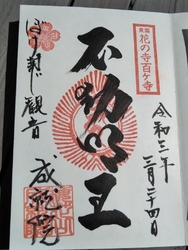 東国
花の寺百ヶ寺
令和三年
三月二十四日
不動明王
ぼけ封じ観音
成就院